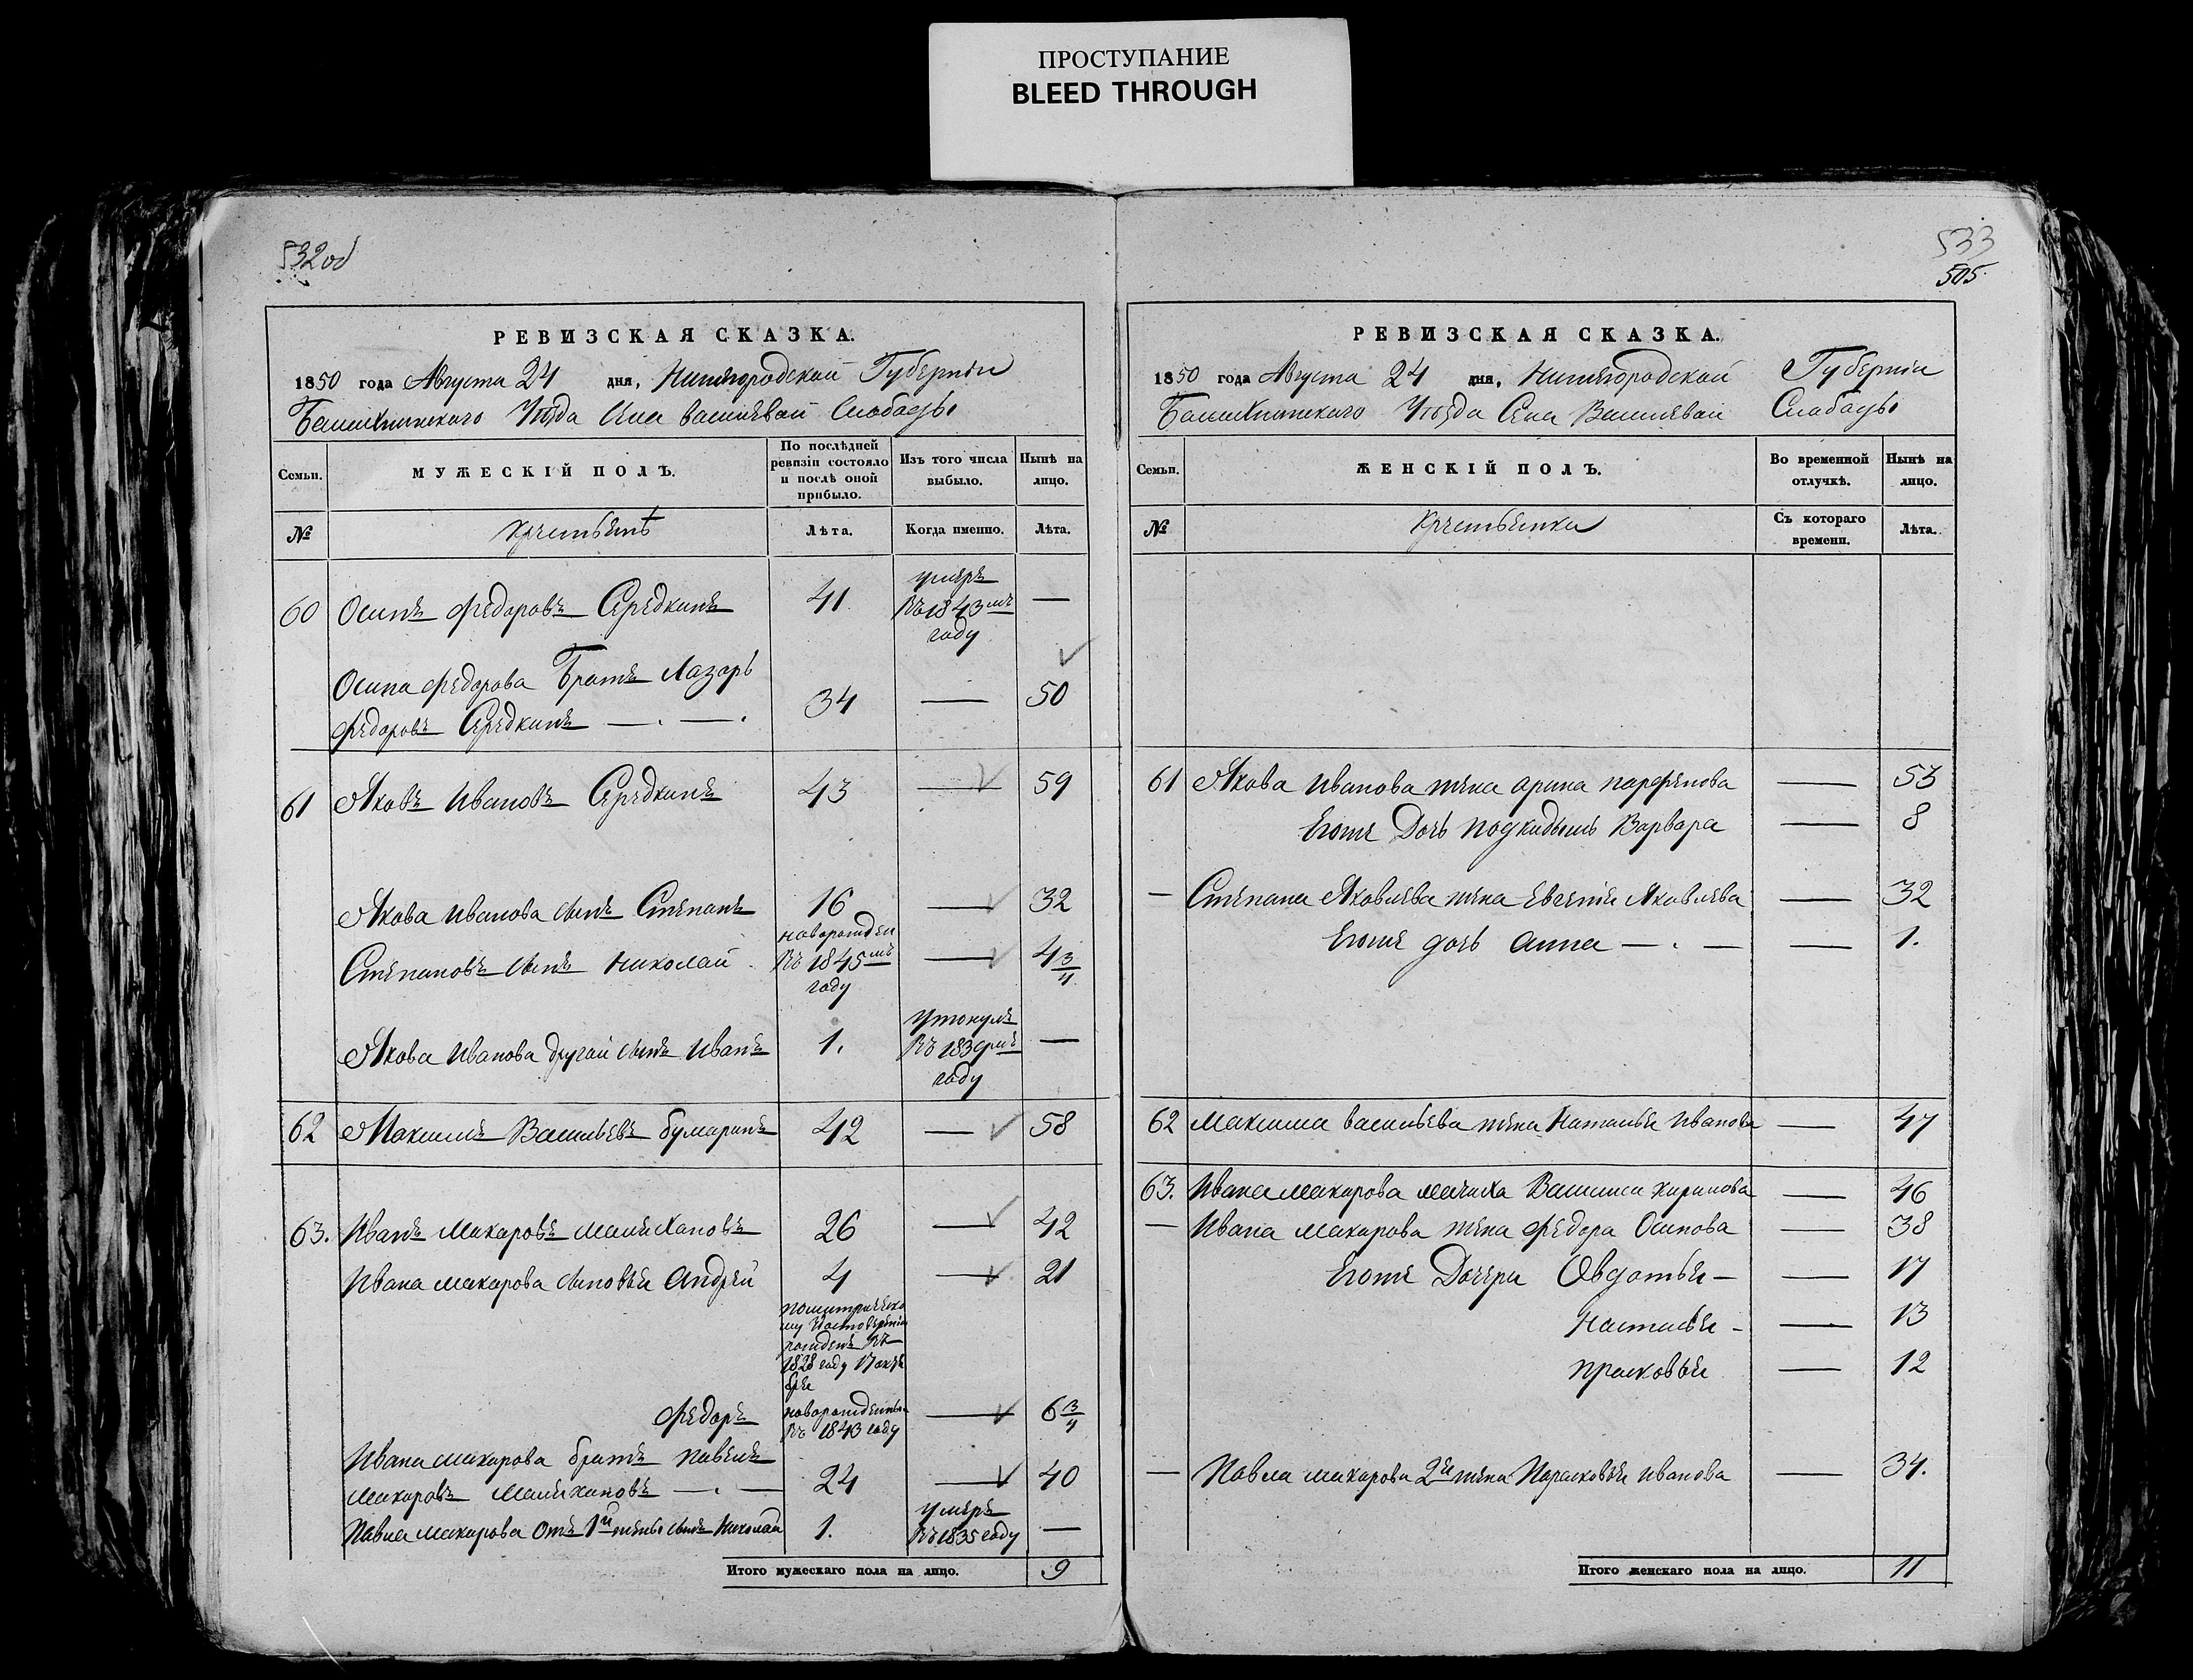 ПРОСТУПАНИЕ
BLEED THROUGH
532об
РЕВИЗСКАЯ СКАЗКА.
1850 года Августа 24 дня, Нижегородской Губерніи
Уѣзда Села Василевай Слабады
Семьи.
МУЖЕСКІЙ ПОЛЪ.
По послѣдней ревизіи состояло и послѣ оной прибыло.
Изъ того числа выбыло.
Нынѣ на лицо.
№
Лѣта.
Когда именно.
Лѣта.
60 Осипъ Федоровъ Середкинъ 41 умеръ въ 1843мъ году —
Осипа Федорова Братъ Лазарь
Федоровъ Середкинъ —.—. 34 — 50
61 Яковъ Ивановъ Середкинъ 43 — 59
Якова Иванова сынъ Степанъ 16 — 32
Степановъ сынъ Николай новорожден въ 1845мъ году — 4 3/4
Якова Иванова другой сынъ Иванъ 1. утонулъ въ 1839мъ году —
62 Максимъ Васильевъ бумаринъ 42 — 58
63. Иванъ Макаровъ 26 — 42
Ивана Макарова сыновья Андрей 4 — 21
рожденъ въ
1828 году 17 октя
бря
Федоръ новорожденный въ 1843 году — 6 3/4
Ивана Макарова братъ Павелъ
Макаровъ —.— 24 — 40
Павла Макарова отъ 1й жены сынъ Николай 1. умеръ въ 1835 году —
Итого мужескаго пола на лицо. 9
533
505.
РЕВИЗСКАЯ СКАЗКА.
1850 года Августа 24 дня, Нижегородской Губерніи
Уѣзда Села Василевай Слабады
Семьи.
ЖЕНСКІЙ ПОЛЪ.
Во временной отлучкѣ.
Нынѣ на лицо.
№
Съ котораго времени.
Лѣта.
61 Якова Иванова жена арина парфенова — 53
Егоже Дочь подкидышъ Варвара — 8
— Степана Яковлева жена Евгенія Яковлева — 32
Егоже дочь анна —.— — 1.
62 Максима васильева жена Наталья Иванова — 47
63. Ивана Макарова мачиха Василиса — 46
— Ивана макарова жена Федора Осипова — 38
Егоже Дочери Овдотья — — 17
Настасья — — 13
прасковья — 12
— Павла макарова 2я жена Парасковья Иванова — 34.
Итого женскаго пола на лицо. 11